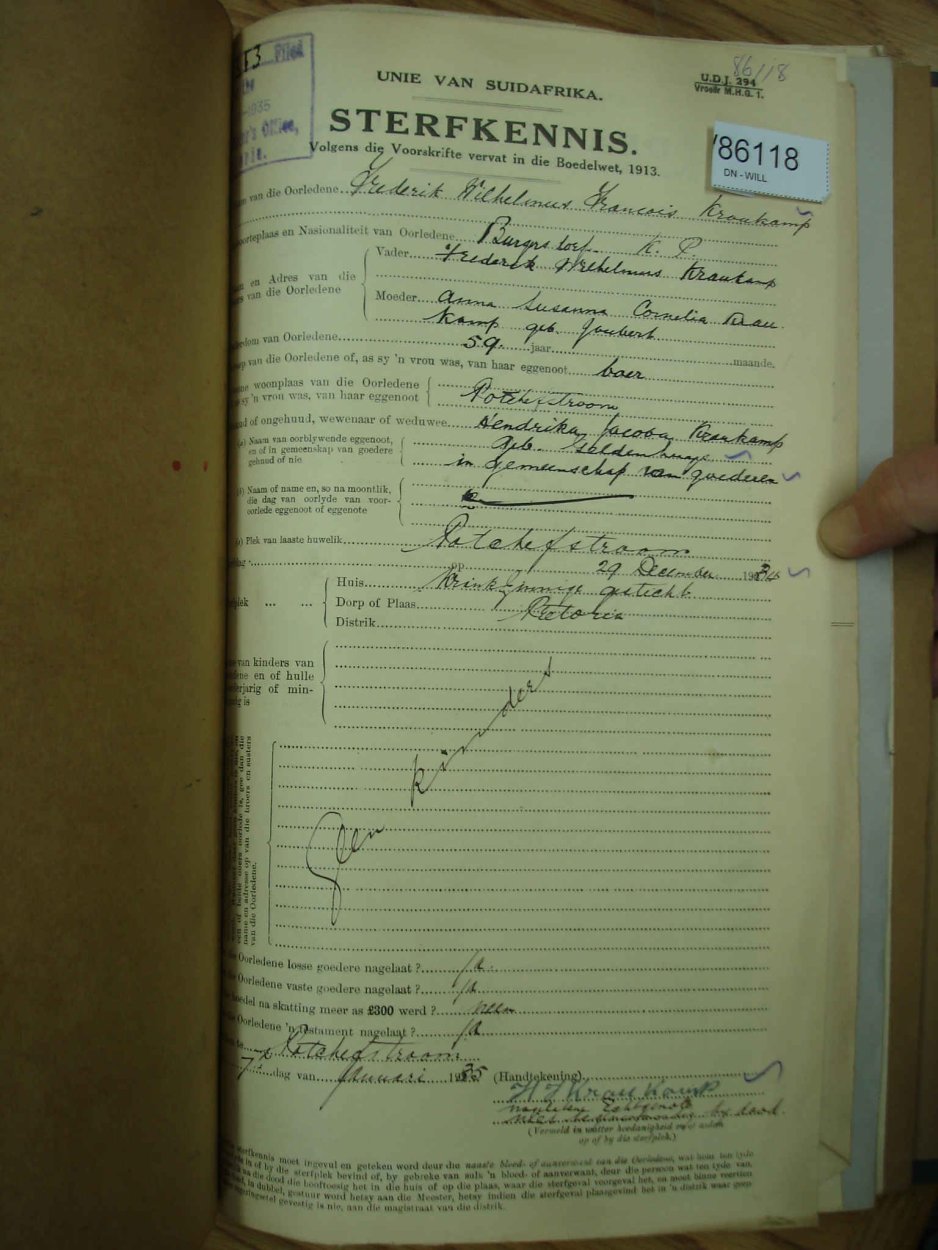 86/18
Filed
1935
Office,
UNIE VAN SUIDAFRIKA.
U.D.J. 294
Vroeër M.H.G. 1.
STERFKENNIS.
Volgens die Voorskrifte vervat in die Boedelwet, 1913.
/86118
DN - WILL
van die Oorledene Frederik Wilhelmus Francois Kraukamp
oorteplaas en Nasionaliteit van Oorledene Burgersdorp K. P.
en Adres van die
ers van die Oorledene
Vader Frederik Wilhelmus Kraukamp
Moeder Anna Susanna Cornelia Krau
kamp geb. Joubert
dom van Oorledene 59 jaar maande.
ep van die Oorledene of, as sy 'n vrou was, van haar eggenoot boer
one woonplaas van die Oorledene
sy 'n vrou was, van haar eggenoot
Potchefstroom
ud of ongehuud, wewenaar of weduwee Hendrika Jacoba Kraukamp
(a) Naam van oorblywende eggenoot,
en of in gemeenskap van goedere
gehuud of nie
geb. Geldenhuys
in gemeenschap van goederen
(b) Naam of name en, so na moontlik,
die dag van oorlyde van voor-
oorlede eggenoot of eggenote
(c) Plek van laaste huwelik Potchefstroom
dag op 29 December 1934
rfplek
Huis Krankzinnige gesticht
Dorp of Plaas Pretoria
Distrik
me van kinders van
dene en of hulle
derjarig of min-
ig is
Geen kinders
een of beide ouers oorlede is, gee dan die
name en adresse op van die broers en susters
van die Oorledene.
die Oorledene losse goedere nagelaat? ja
die Oorledene vaste goedere nagelaat? ja
boedel na skatting meer as £300 werd? neen
die Oorledene 'n Testament nagelaat? ja
te Potchefstroom
7de dag van Januari 1935 (Handtekening)
H J Kraukamp
nagelatene Echtgenote
by dood.
(Vermeld in watter hoedanigheid en of
op of by die sterfplek.)
sterfkennis moet ingevul en geteken word deur die naaste bloed- of aanverwant van die Oorledene, wat hom ten tyde
in of by die sterfplek bevind of, by gebreke van sulk 'n bloed- of aanverwant, deur die persoon wat ten tyde van,
na die dood die hooftoesig het in die huis of op die plaas, waar die sterfgeval voorgeval het, en moet binne veertien
in dubbel, gestuur word hetsy aan die Meester, hetsy indien die sterfgeval plaasgevind het in 'n distrik waar geen
gevestig is nie, aan die magistraat van die distrik.